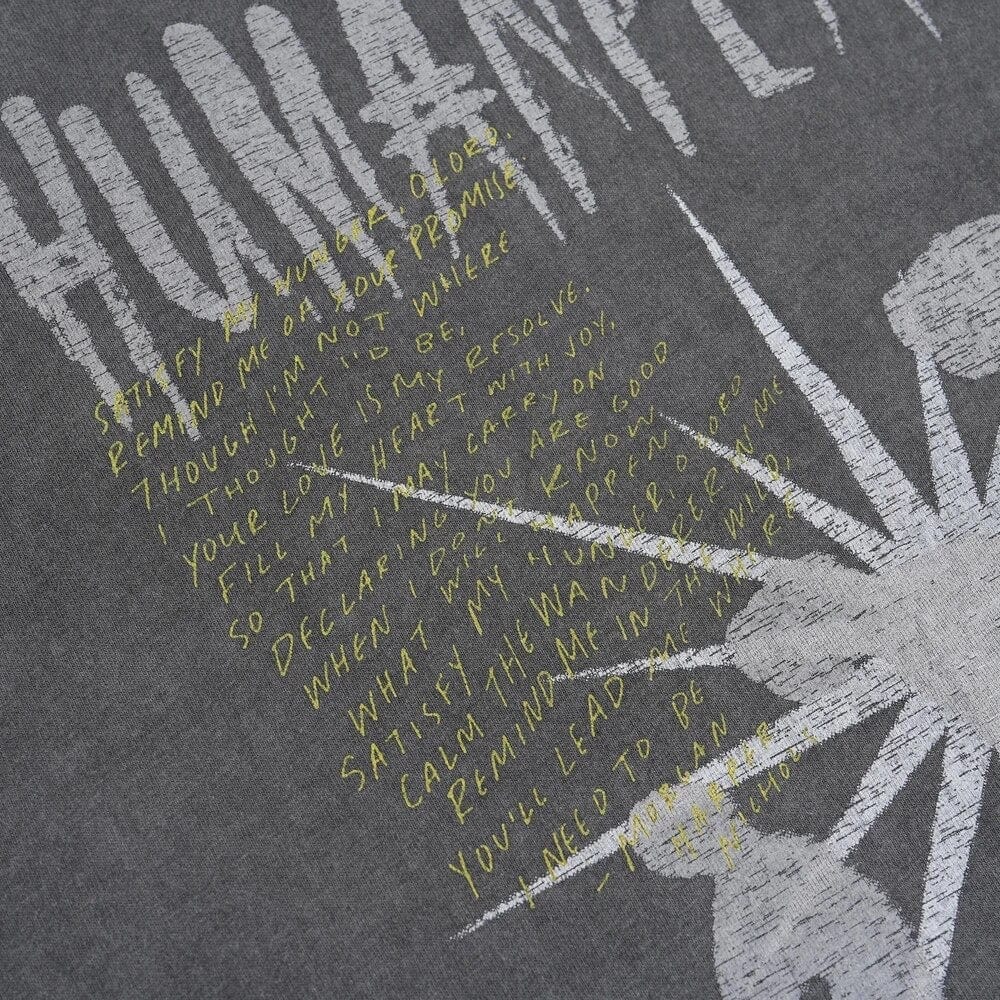 HUMAN
SATISFY MY HUNGER, O LORD.
REMIND ME OF YOUR PROMISE.
THOUGH I'M NOT WHERE
I THOUGHT I'D BE,
YOUR LOVE IS MY RESOLVE.
FILL MY HEART WITH JOY,
SO THAT I MAY CARRY ON
DECLARING YOU ARE GOOD
WHEN I DON'T KNOW
WHAT WILL HAPPEN
SATISFY MY HUNGER, O LORD
CALM THE WANDERER IN ME
REMIND ME IN THE WILD,
YOU'LL LEAD ME WHERE
I NEED TO BE
- MORGAN
HARPER
NICHOLS